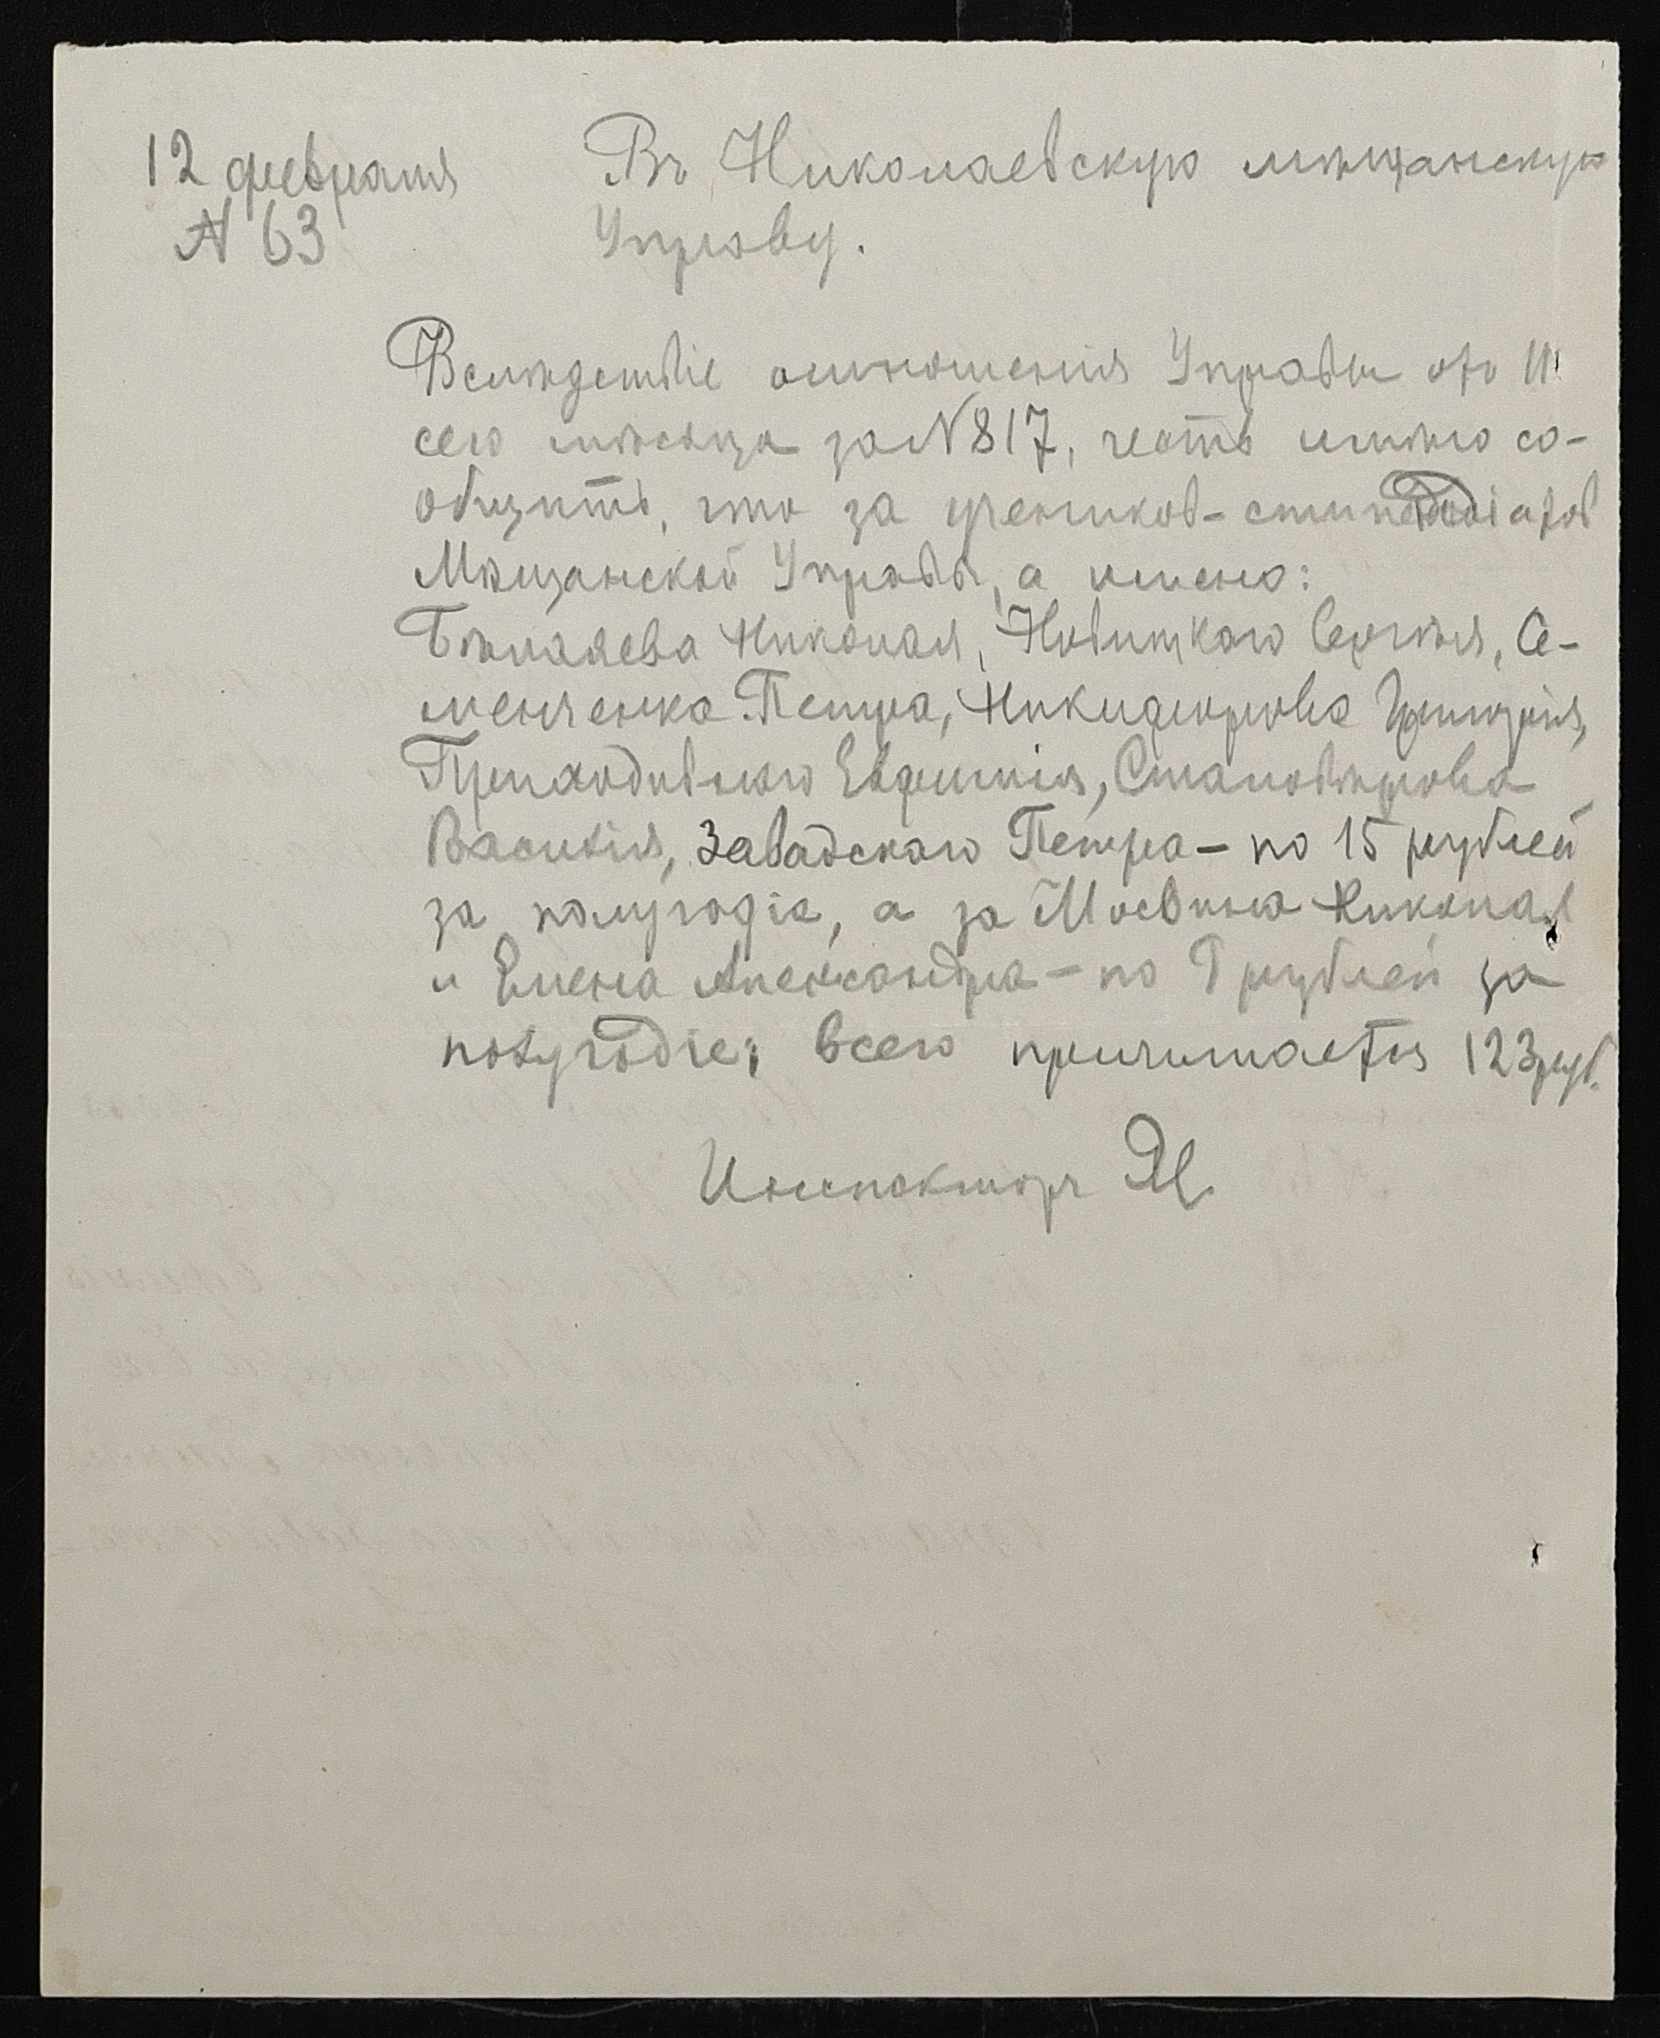 12 февраля
№ 63
Въ Николаевскую мѣщанскую
Управу.
Вслѣдствіе отношенія Управы отъ 11
сего мѣсяца за № 817, честь имѣю со-
общить, что за учеников-стипендіатов
Мѣщанской Управы, а имено:
Бѣлаяева Николая, Новицкаго Сергѣя, Се-
менченка Петра, Никифорова Григорія,
Приходивскаго Евфимія, Становѣрова
Василія, Завадскаго Петра - по 15 рублей
за полугодіе, а за Мосвина Николая
и Елена Александра - по 9 рублей за
полугодіе; всего причитается 123 руб.
Инспекторъ